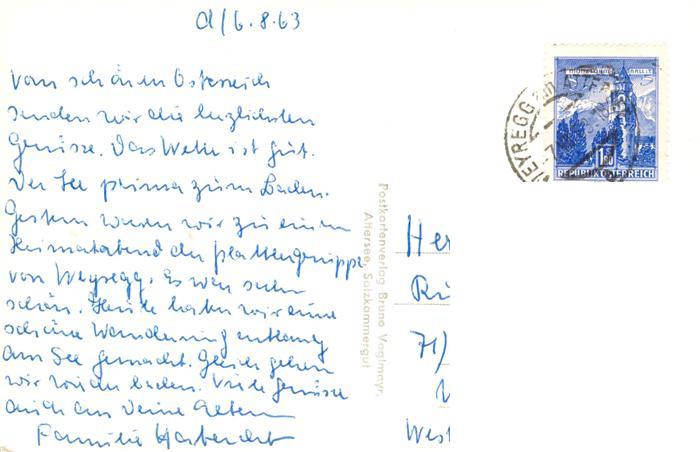 d/6.8.63
Vom schönen Österreich
senden wir die herzlichsten
Grüsse. Das Wetter ist gut.
Der See prima zum Baden.
Gestern waren wir zu einem
Heimatabend der plattlergruppe
von Weyregg. Es war sehr
schön. Heute haben wir eine
schöne Wanderung entlang
am See gemacht. Gleich gehen
wir wieder baden. Viele Grüsse
auch an Deine Eltern
Familie
Postkartenverlag Bruno Voglmayr,
Attersee, Salzkammergut
Her
Rü
71/
Wes
WEYREGG AM ATTERSEE
1.50
REPUBLIK ÖSTERREICH